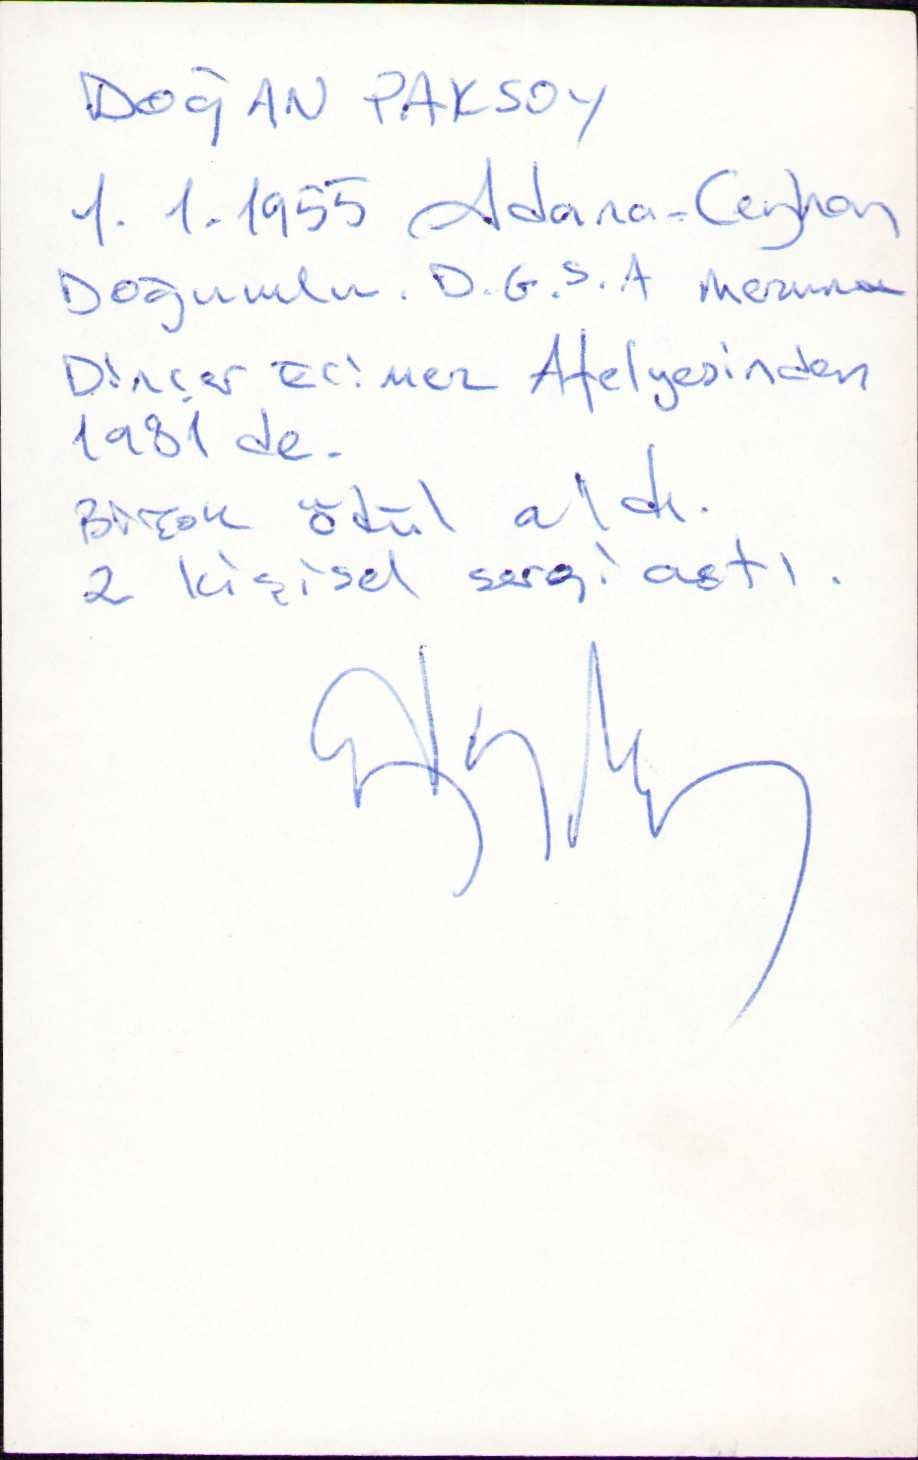 DOĞAN PAKSOY
1. 1. 1955 Adana-Ceyhan
Doğumlu. D.G.S.A mezunu
Dinçer Erimez Atelyesinden
1981 de.
Birçok ödül aldı.
2 kişisel sergi astı.